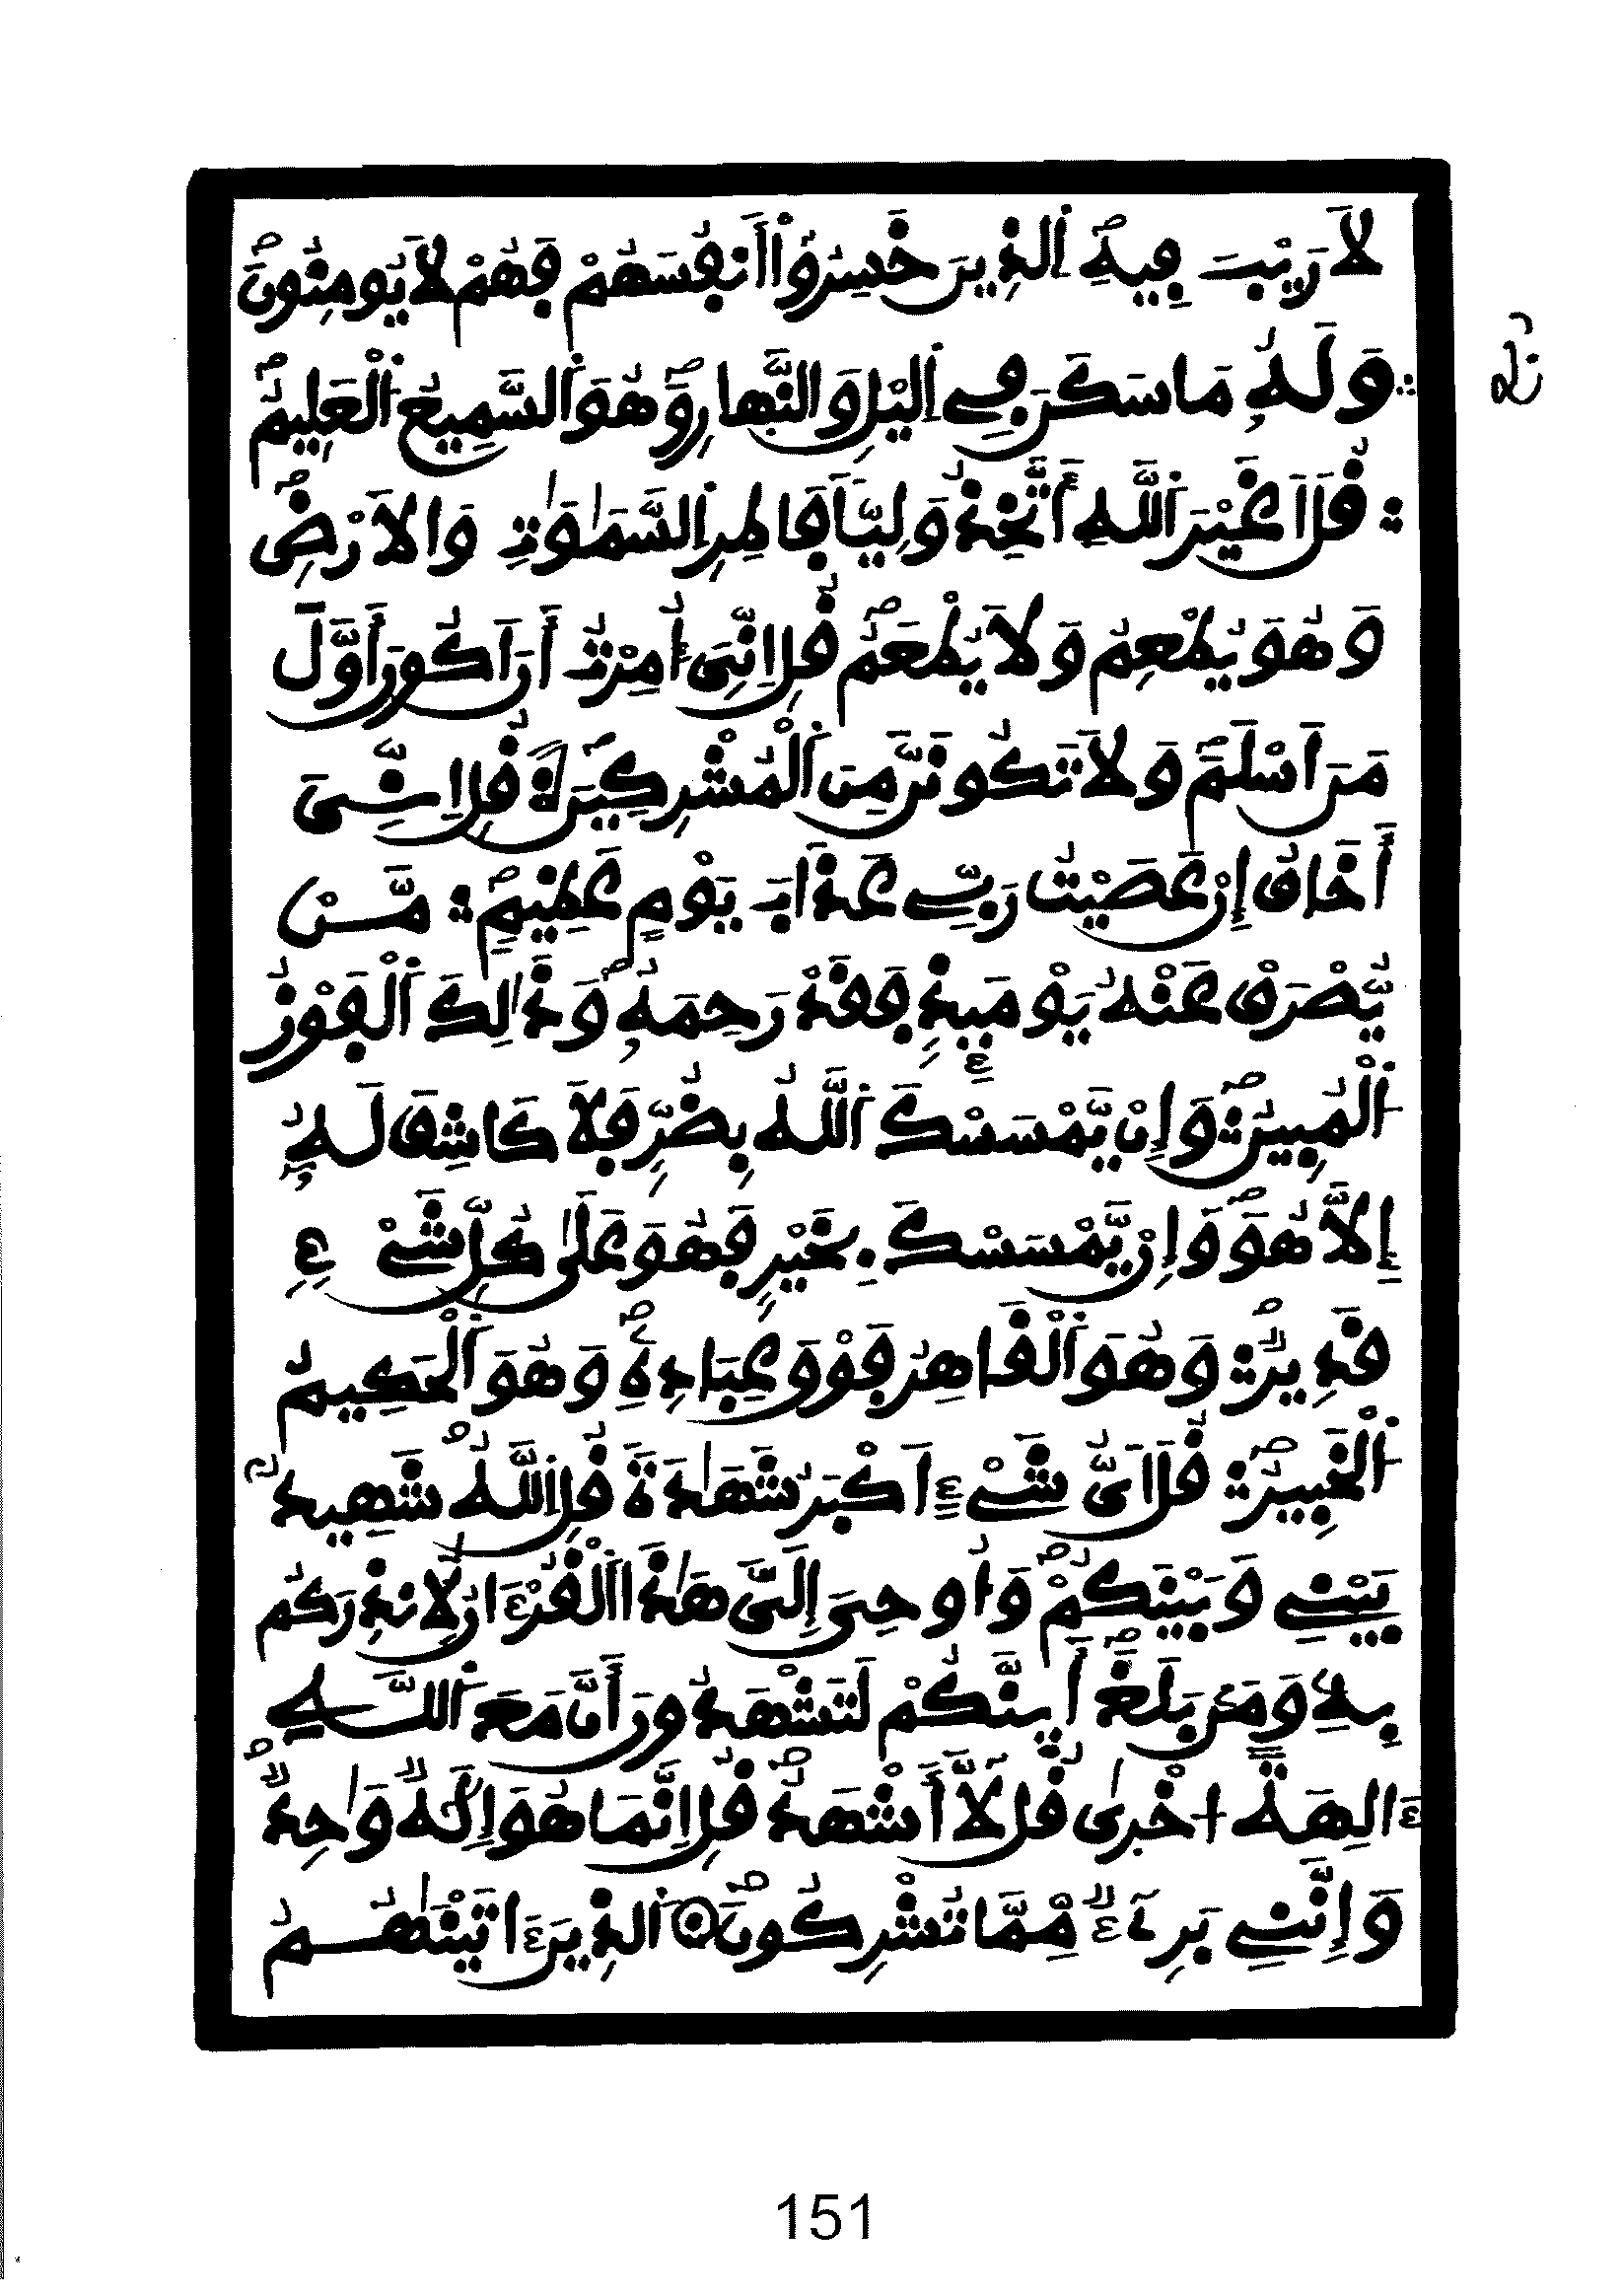 لَا رَيْبَ فِيهِ اَلذِينَ خَسِرُوٓاْ أَنفُسَهُمْ فَهُمْ لَا يُومِنُونَ
وَلَهُۥ مَا سَكَنَ فِے اِليْلِ وَالنَّهارِ وَهُوَ اَلسَّمِيعُ اَلْعَلِيمُ
قُلَ اَغَيْرَ اَللَّهِ أَتَّخِذُ وَلِيّاٗ فَاطِرِ اِلسَّمَٰوَٰتِ وَالَارْضِ
وَهُوَ يُطْعِمُ وَلَا يُطْعَمُ قُلِ اِنِّيَ أُمِرْتُ أَنَ اَكُونَ أَوَّلَ
مَنَ اَسْلَمَ وَلَا تَكُونَنَّ مِنَ اَلْمُشْرِكِينَ قُلِ اِنِّيَ
أَخَافُ إِنْ عَصَيْتُ رَبِّے عَذَابَ يَوْمٍ عَظِيمٖ مَّنْ
يُّصْرَفْ عَنْهُ يَوْمَئِذٖ فَقَدْ رَحِمَهُۥ وَذَٰلِكَ اَلْفَوْزُ
اَلْمُبِينُ وَإِنْ يَّمْسَسْكَ اَللَّهُ بِضُرّٖ فَلَا كَاشِفَ لَهُۥ
إِلَّا هُوَ وَإِنْ يَّمْسَسْكَ بِخَيْرٖ فَهُوَ عَلَىٰ كُلِّ شَےْءٖ
قَدِيرٞ وَهُوَ اَلْقَاهِرُ فَوْقَ عِبَادِهِۦ وَهُوَ اَلْحَكِيمُ
اَلْخَبِيرُ قُلَ اَيُّ شَےْءٍ اَكْبَرُ شَهَٰدَةٗ قُلِ اِللَّهُ شَهِيدُۢ
بَيْنِے وَبَيْنَكُمْ وَأُوحِيَ إِلَيَّ هَٰذَا اَلْقُرْءَانُ لِأُنذِرَكُم
بِهِۦ وَمَنۢ بَلَغَ أَئِنَّكُمْ لَتَشْهَدُونَ أَنَّ مَعَ اَللَّهِ
ءَالِهَةً اخْر۪ىٰ قُل لَّآ أَشْهَدُ قُلِ اِنَّمَا هُوَ إِلَٰهٞ وَٰحِدٞ
وَإِنَّنِے بَرِےٓءٞ مِّمَّا تُشْرِكُونَ اَلذِينَ ءَاتَيْنَٰهُمُ
151